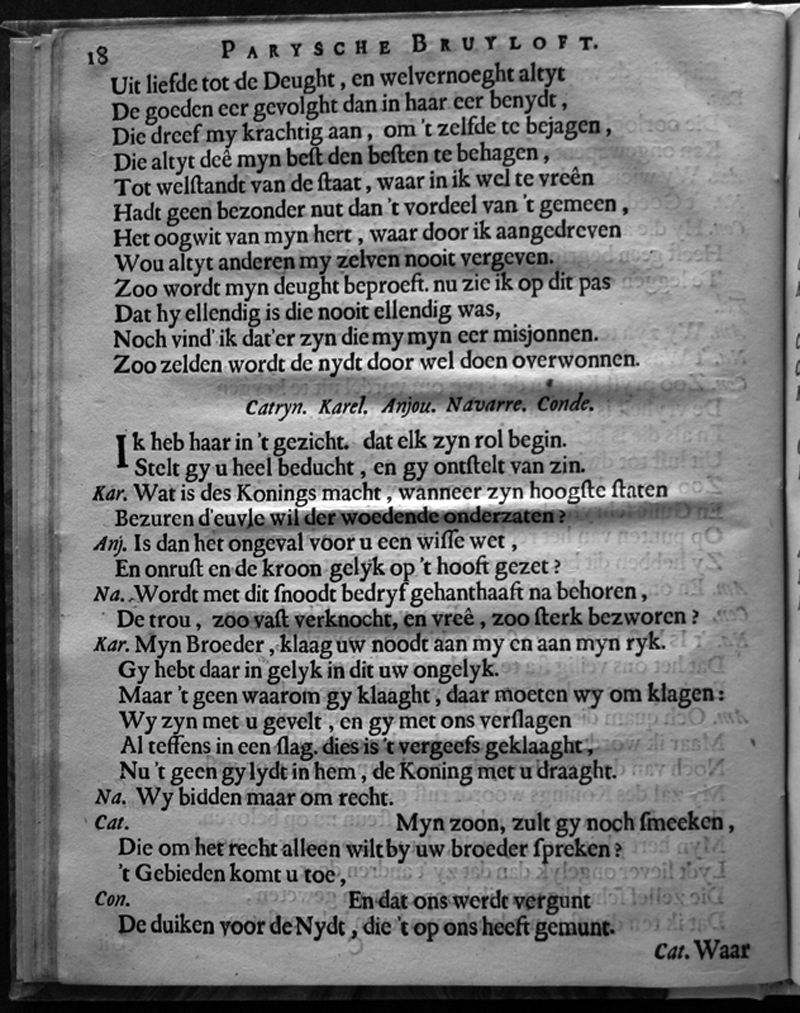 18 PARYSCHE BRUYLOFT.
Uit liefde tot de Deught, en welvernoeght altyt
De goeden eer gevolght dan in haar eer benydt,
Die dreef my krachtig aan, om 't zelfde te bejagen,
Die altyt deê myn beſt den beſten te behagen,
Tot welſtandt van de ſtaat, waar in ik wel te vreên
Hadt geen bezonder nut dan 't vordeel van 't gemeen,
Het oogwit van myn hert, waar door ik aangedreven
Wou altyt anderen my zelven nooit vergeven.
Zoo wordt myn deught beproeft. nu zie ik op dit pas
Dat hy ellendig is die nooit ellendig was,
Noch vind' ik dat'er zyn die my myn eer misjonnen.
Zoo zelden wordt de nydt door wel doen overwonnen.
Catryn. Karel. Anjou. Navarre. Conde.
Ik heb haar in 't gezicht. dat elk zyn rol begin.
Stelt gy u heel beducht, en gy ontſtelt van zin.
Kar. Wat is des Konings macht, wanneer zyn hoogſte ſtaten
Bezuren d'euvle wil der woedende onderzaten?
Anj. Is dan het ongeval voor u een wiſſe wet,
En onruſt en de kroon gelyk op 't hooft gezet?
Na. Wordt met dit ſnoodt bedryf gehanthaaft na behoren,
De trou, zoo vaſt verknocht, en vreê, zoo ſterk bezworen?
Kar. Myn Broeder, klaag uw noodt aan my en aan myn ryk.
Gy hebt daar in gelyk in dit uw ongelyk.
Maar 't geen waarom gy klaaght, daar moeten wy om klagen:
Wy zyn met u gevelt, en gy met ons verſlagen
Al teffens in een ſlag. dies is 't vergeefs geklaaght,
Nu 't geen gy lydt in hem, de Koning met u draaght.
Na. Wy bidden maar om recht.
Cat. Myn zoon, zult gy noch ſmeeken,
Die om het recht alleen wilt by uw broeder ſpreken?
't Gebieden komt u toe,
Con. En dat ons werdt vergunt
De duiken voor de Nydt, die 't op ons heeft gemunt.
Cat. Waar